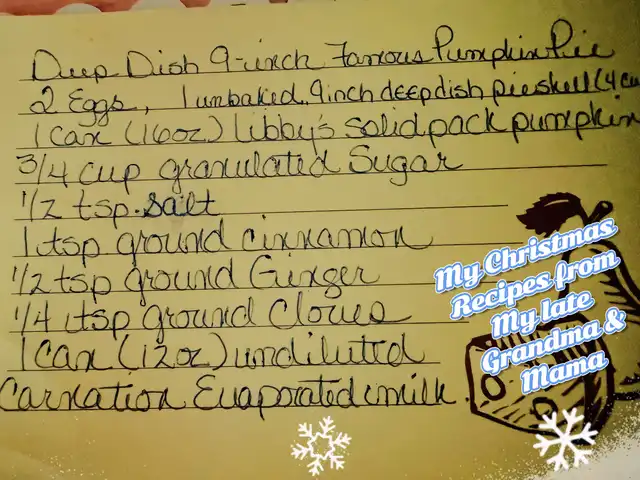 Deep Dish 9-inch Famous Pumpkin Pie
2 Eggs, 1 unbaked 9inch deepdish pie shell (4 cu
1 Can (16oz) Libby's solid pack pumpkin
3/4 cup granulated Sugar
1/2 tsp. salt
1 tsp ground cinnamon
1/2 tsp ground Ginger
1/4 tsp ground Cloves
1 Can (12oz) undiluted
Carnation Evaporated milk.
My Christmas
Recipes from
My late
Grandma &
Mama